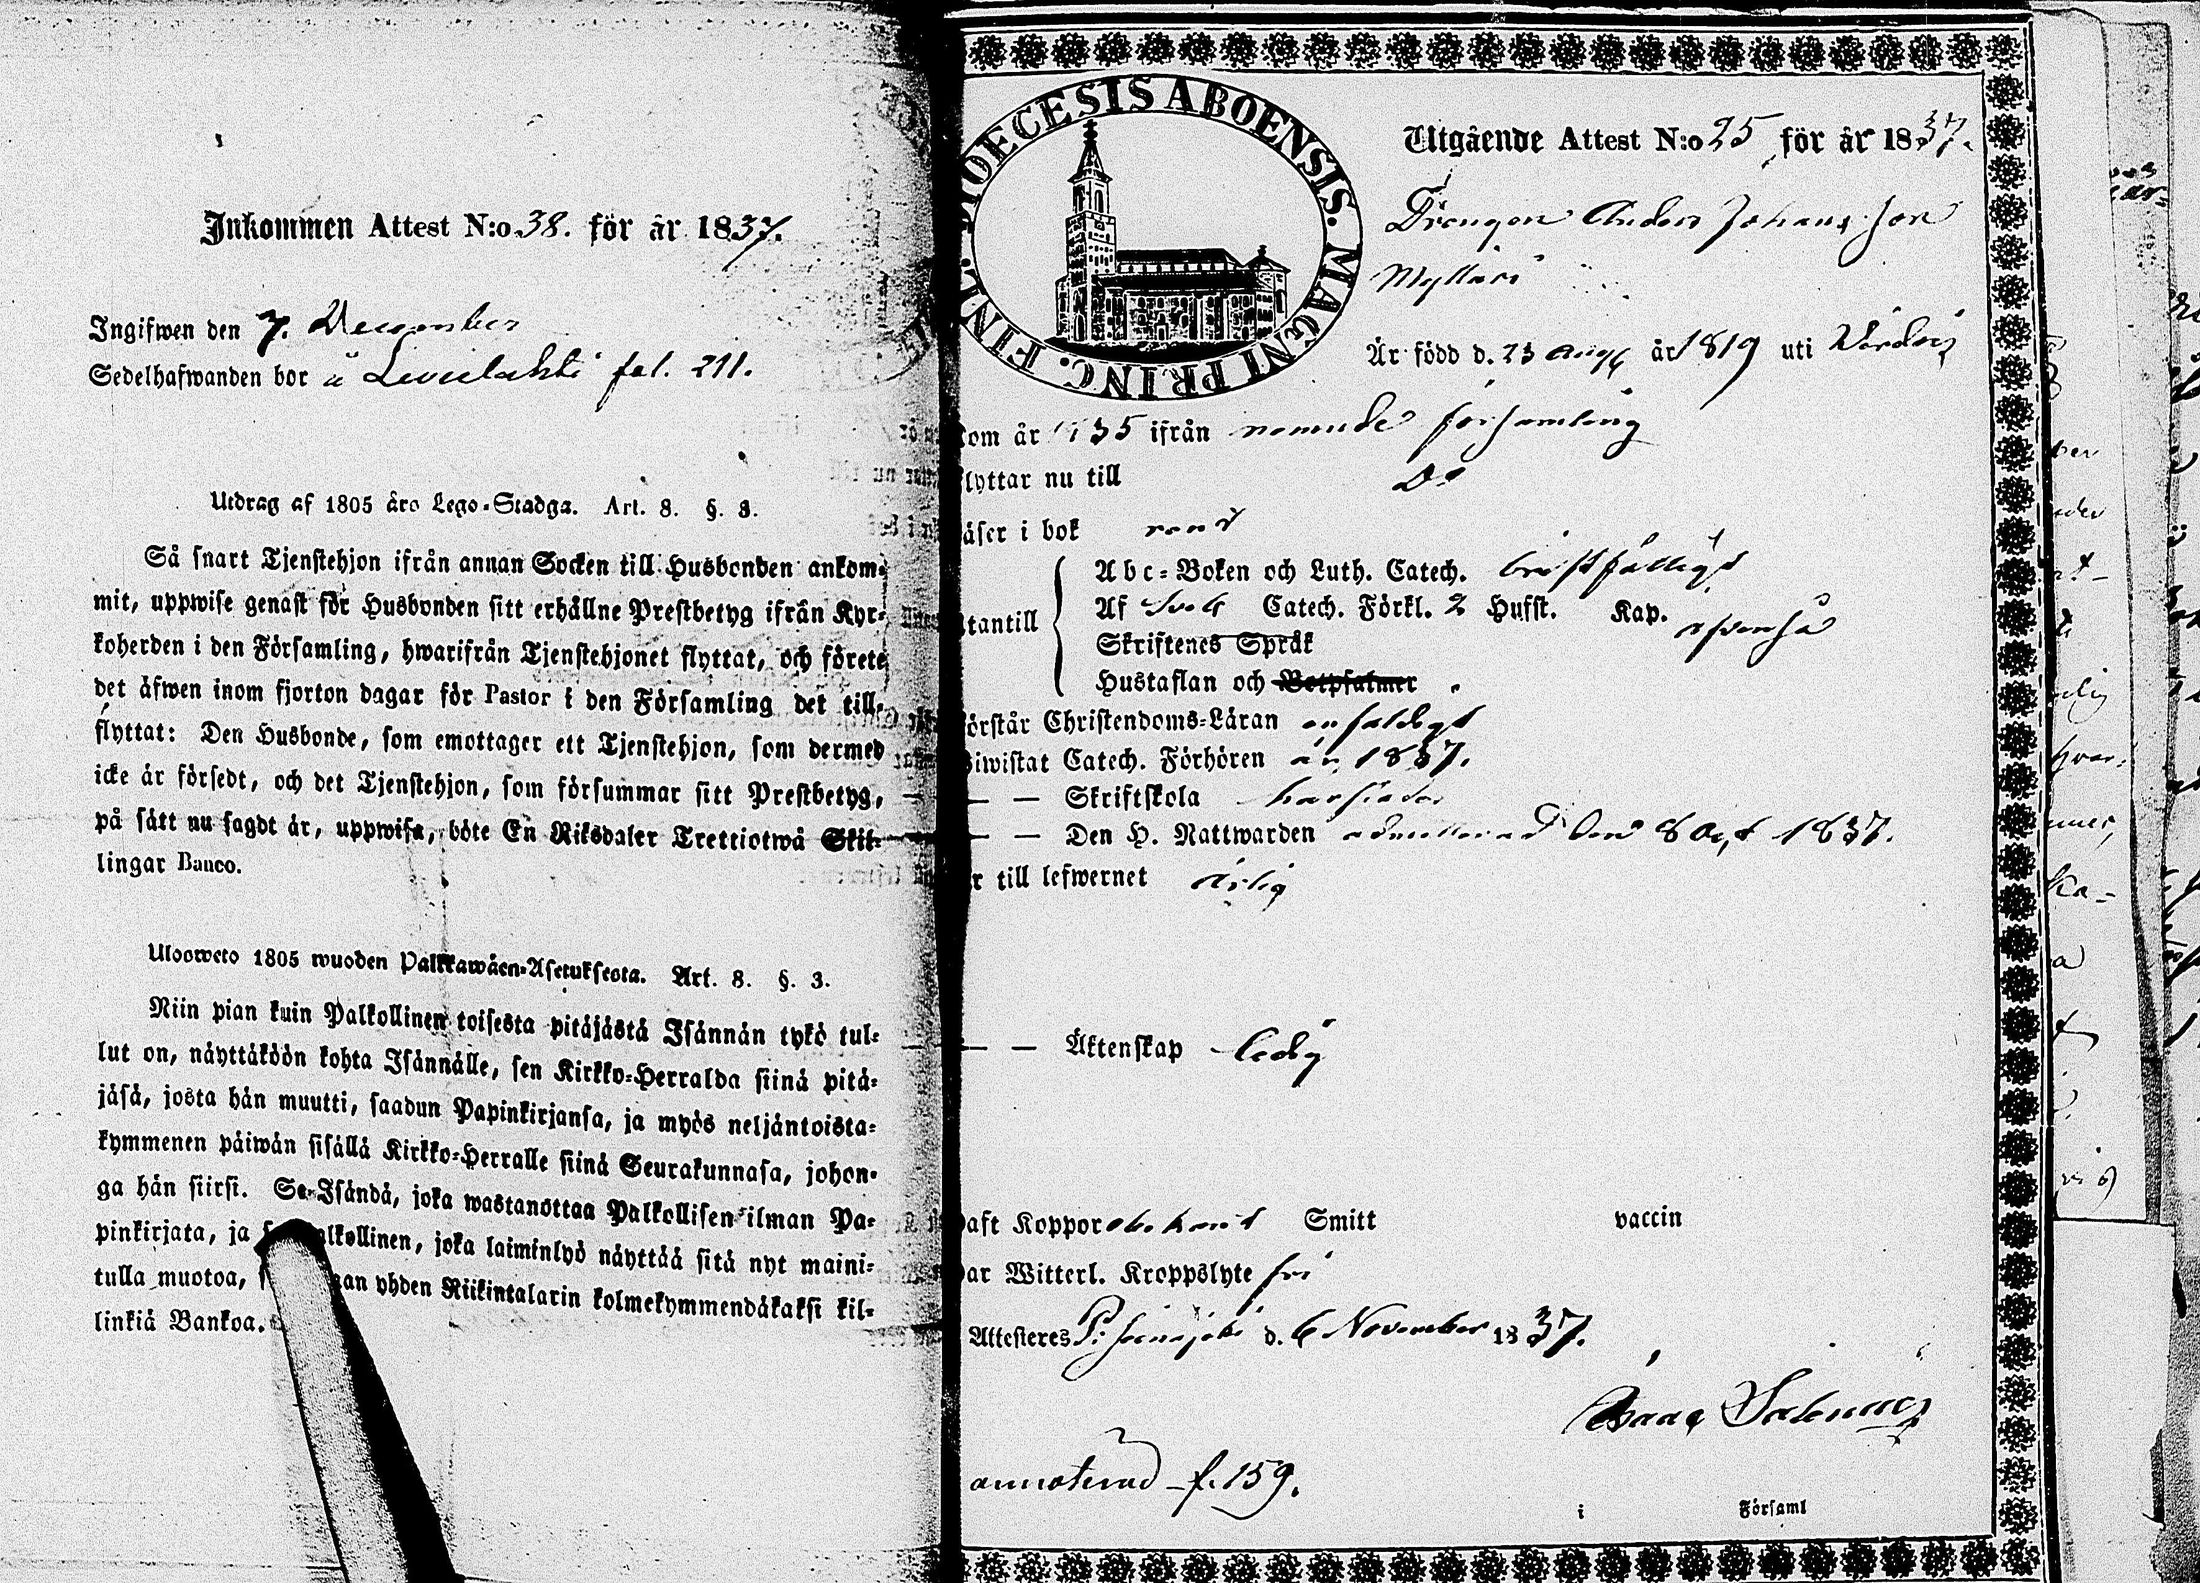 Inkommen Attest N:o 38. för år 1837.
Ingifwen den 7. December
Sedelhafwanden bor å Levelahti fol. 211.
Utdrag af 1805 års Lego-Stadga. Art. 8. §. 3.
Så snart Tjenstehjon ifrån annan Socken till Husbonden ankom-
mit, uppwise genast för Husbonden sitt erhållne Prestbetyg ifrån Kyr-
koherden i den Församling, hwarifrån Tjenstehjonet flyttat, och förete
det äfwen inom fjorton dagar för Pastor i den Församling det till-
flyttat: Den Husbonde, som emottager ett Tjenstehjon, som dermed
icke är försedt, och det Tjenstehjon, som försummar sitt Prestbetyg,
på sätt nu sagdt är, uppwisa, böte En Riksdaler Trettiotwå Skil-
lingar Banco.
Ulosweto 1805 wuoden Palkkawäen-Asetuksesta. Art. 8. §. 3.
Niin pian kuin Palkollinen toisesta pitäjästä Isännän tykö tul-
lut on, näyttäköön kohta Isännälle, sen Kirkko-Herralda siinä pitä-
jäsä, josta hän muutti, saadun Papinkirjansa, ja myös neljäntoista-
kymmenen päiwän sisällä Kirkko-Herralle siinä Seurakunnasa, johon-
ga hän siirsi. Se Isändä, joka wastanottaa Palkollisen ilman Pa-
pinkirjata, ja alkollinen, joka laiminlyö näyttää sitä nyt maini-
tulla muotoa, aan yhden Riikintalarin kolmekymmendäkaksi kil-
linkiä Bankoa.
FINL. DIOECESIS ABOENSIS. MAGNI PRINC.
Utgående Attest N:o 25 för år 1837.
Drengen Anders Johansson
Myllari
Är född d. 23 Aug år 1819 uti Wördö
om år 1835 ifrån nemnde församling
lyttar nu till Do
äser i bok
Abc-Boken och Luth. Catech. bristfälligt
tantill
Af Sveb Catech. Förkl. 2 Hufst. Kap.
Skriftenes Språk
Hustaflan och Botpsalmer
örstår Christendoms-Läran enfaldigt
iwistat Catech. Förhören år 1837.
— — Skriftskola
— — Den H. Nattwarden admitterad den 8 Oct 1837.
r till lefwernet ärlig
— — Äktenskap ledig
aft Koppor obekant Smitt vaccin
ar Witterl. Kroppslyte fri
Attesteres d. 6 November 1837.
Isaac
annoterad f. 159.
i Församl